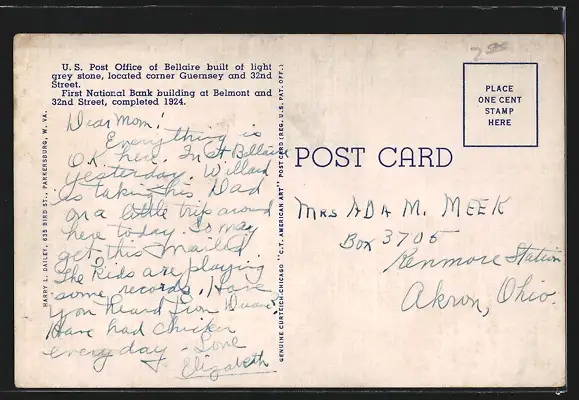 U. S. Post Office of Bellaire built of light
grey stone, located corner Guernsey and 32nd
Street.
First National Bank building at Belmont and
32nd Street, completed 1924.
Dear Mom!
Everything is
O.K. here. In at Bellaire
yesterday. Willard
is taking his Dad
on a little trip around
here today. So may
get this mailed.
The Kids are playing
some records. Have
you heard from Duane?
Have had chicken
every day - Love
Elizabeth
HARRY L. DAILEY, 635 BIRD ST., PARKERSBURG, W. VA.
GENUINE CURTEICH-CHICAGO "C.T. AMERICAN ART" POST CARD (REG. U.S. PAT. OFF.)
POST CARD
PLACE
ONE CENT
STAMP
HERE
2.00
MRS ADA M. MEEK
Box 3705
Kenmore Station
Akron, Ohio.